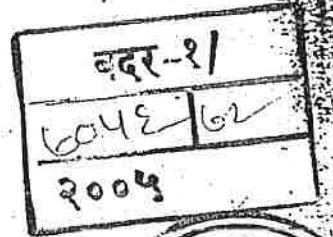 बदर-१/
७०५६ | ७२
२००५